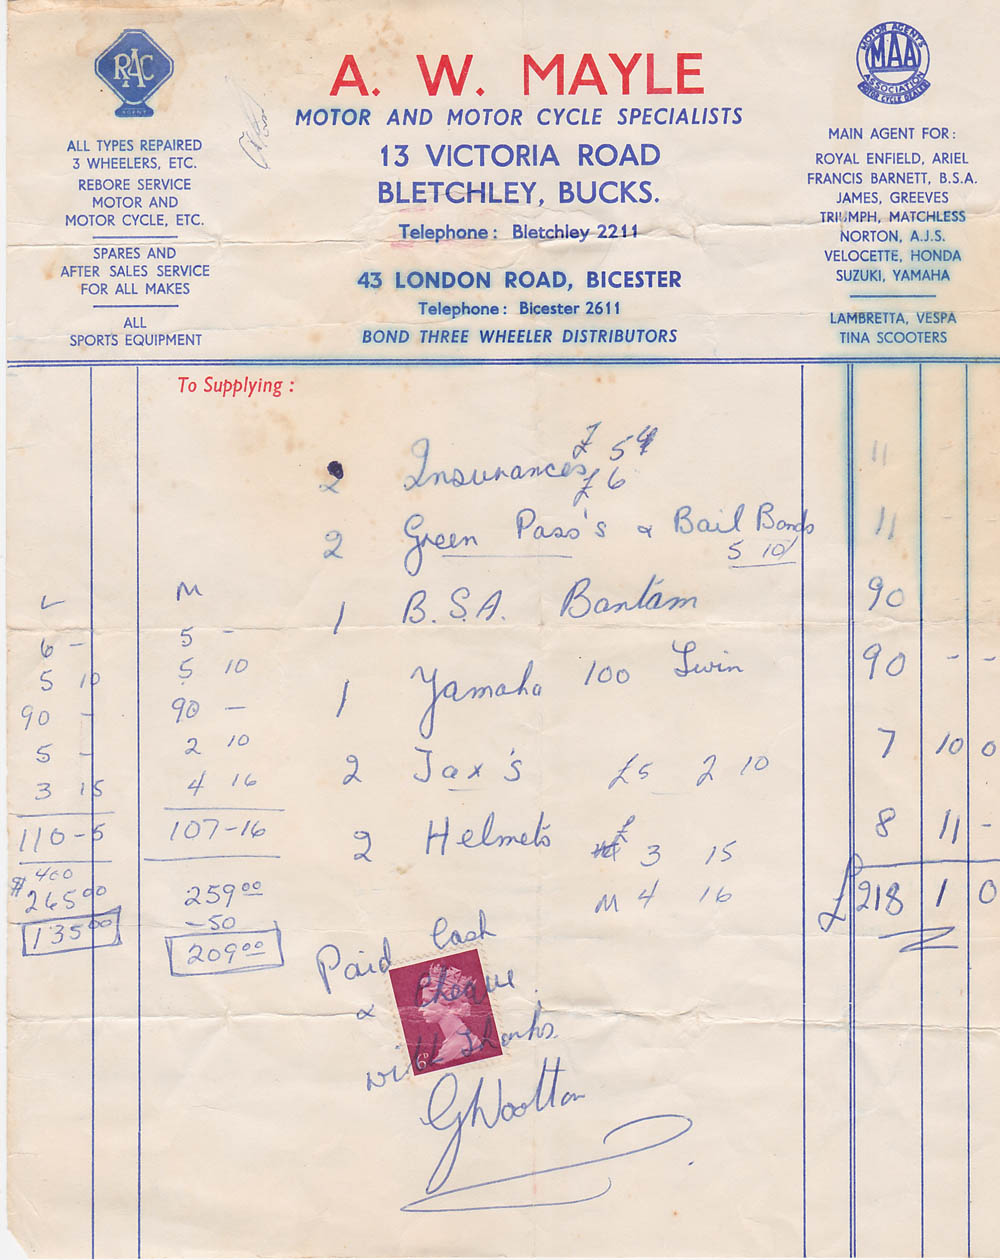 RAC
AGENT
ALL TYPES REPAIRED
3 WHEELERS, ETC.
REBORE SERVICE
MOTOR AND
MOTOR CYCLE, ETC.
SPARES AND
AFTER SALES SERVICE
FOR ALL MAKES
ALL
SPORTS EQUIPMENT
A. W. MAYLE
MOTOR AND MOTOR CYCLE SPECIALISTS
13 VICTORIA ROAD
BLETCHLEY, BUCKS.
Telephone: Bletchley 2211
43 LONDON ROAD, BICESTER
Telephone: Bicester 2611
BOND THREE WHEELER DISTRIBUTORS
MOTOR AGENTS
MAA
ASSOCIATION
MOTOR CYCLE DEALER
MAIN AGENT FOR:
ROYAL ENFIELD, ARIEL
FRANCIS BARNETT, B.S.A.
JAMES, GREEVES
TRIUMPH, MATCHLESS
NORTON, A.J.S.
VELOCETTE, HONDA
SUZUKI, YAMAHA
LAMBRETTA, VESPA
TINA SCOOTERS
To Supplying:
2 Insurances £ 5 11
£ 6
2 Green Pass's & Bail Bonds 11
5 10/
1 B.S.A. Bantam 90
1 Yamaha 100 Twin 90 - -
2 Tax's £5 2 10 7 10 0
2 Helmets £ 3 15 8 11 -
M 4 16 £218 1 0
L
6 -
5 10
90 -
5 -
3 15
110-5
$ 400
265 00
135 00
M
5 -
5 10
90 -
2 10
4 16
107-16
259 00
-50
209 00
Paid Cash
& Cheque.
with Thanks.
6D
GWootton